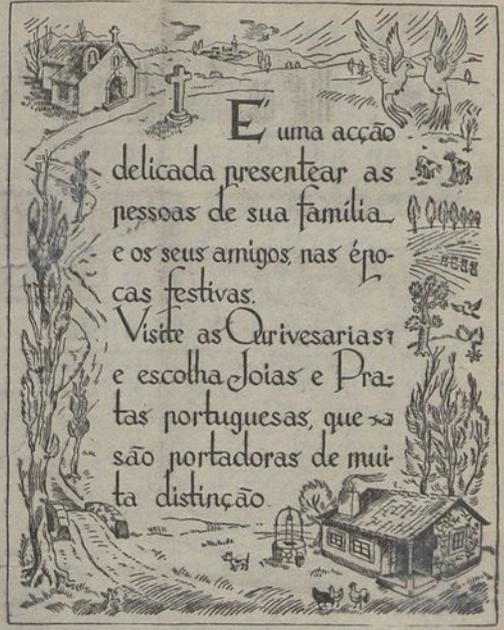 É uma acção
delicada presentear as
pessoas de sua família
e os seus amigos, nas épo-
cas festivas.
Visite as Ourivesarias
e escolha Joias e Pra-
tas portuguesas, que
são portadoras de mui-
ta distinção.